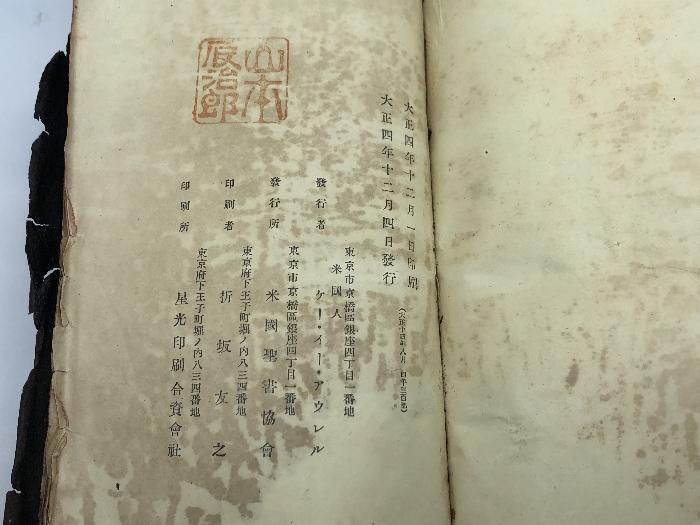 大正四年十二月一日印刷
大正四年十二月四日發行
東京市京橋區銀座四丁目一番地
米國人
發行者 ケー・イー・アウレル
東京市京橋區銀座四丁目一番地
發行所 米國聖書協會
東京府下王子町堀ノ内八三四番地
印刷者 折坂友之
東京府下王子町堀ノ内八三四番地
印刷所 星光印刷合資會社
山本
治郎